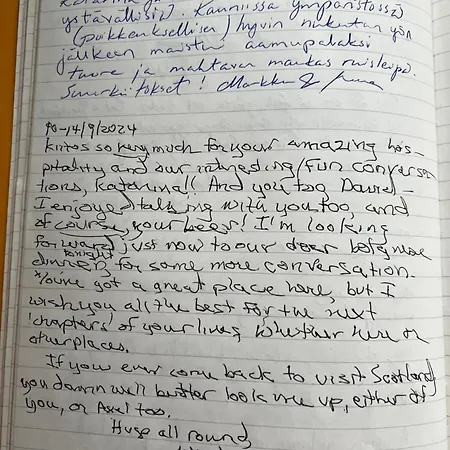 ystävällisiä). Kauniissa ympäristössä
(poikkeuksellisen) hyvin nukutun yön
jälkeen maistui aamupalaksi
tuore ja mahtavan maukas ruisleipä.
Suurkiitokset! Markku &
-14/9/2024
Kiitos so very much for your amazing hos-
pitality and our interesting/fun conversa
tions, Katariina!! And you too David -
I enjoyed talking with you too, and
of course, your beer! I'm looking
forward just now to our
dinner tonight for some more conversation.
You've got a great place here, but I
wish you all the best for the next
'chapters' of your lives, whether here or
other places.
If you ever come back to visit Scotland,
you damn well better look me up, either of
you, or Axel too.
Hugs all round,